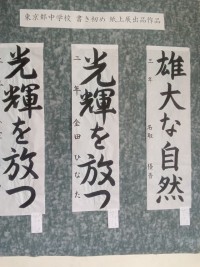 東京都中学校 書き初め 紙上展出品作品
雄大な自然
三年
光輝を放つ
二年 金田 ひなた
光輝を放つ